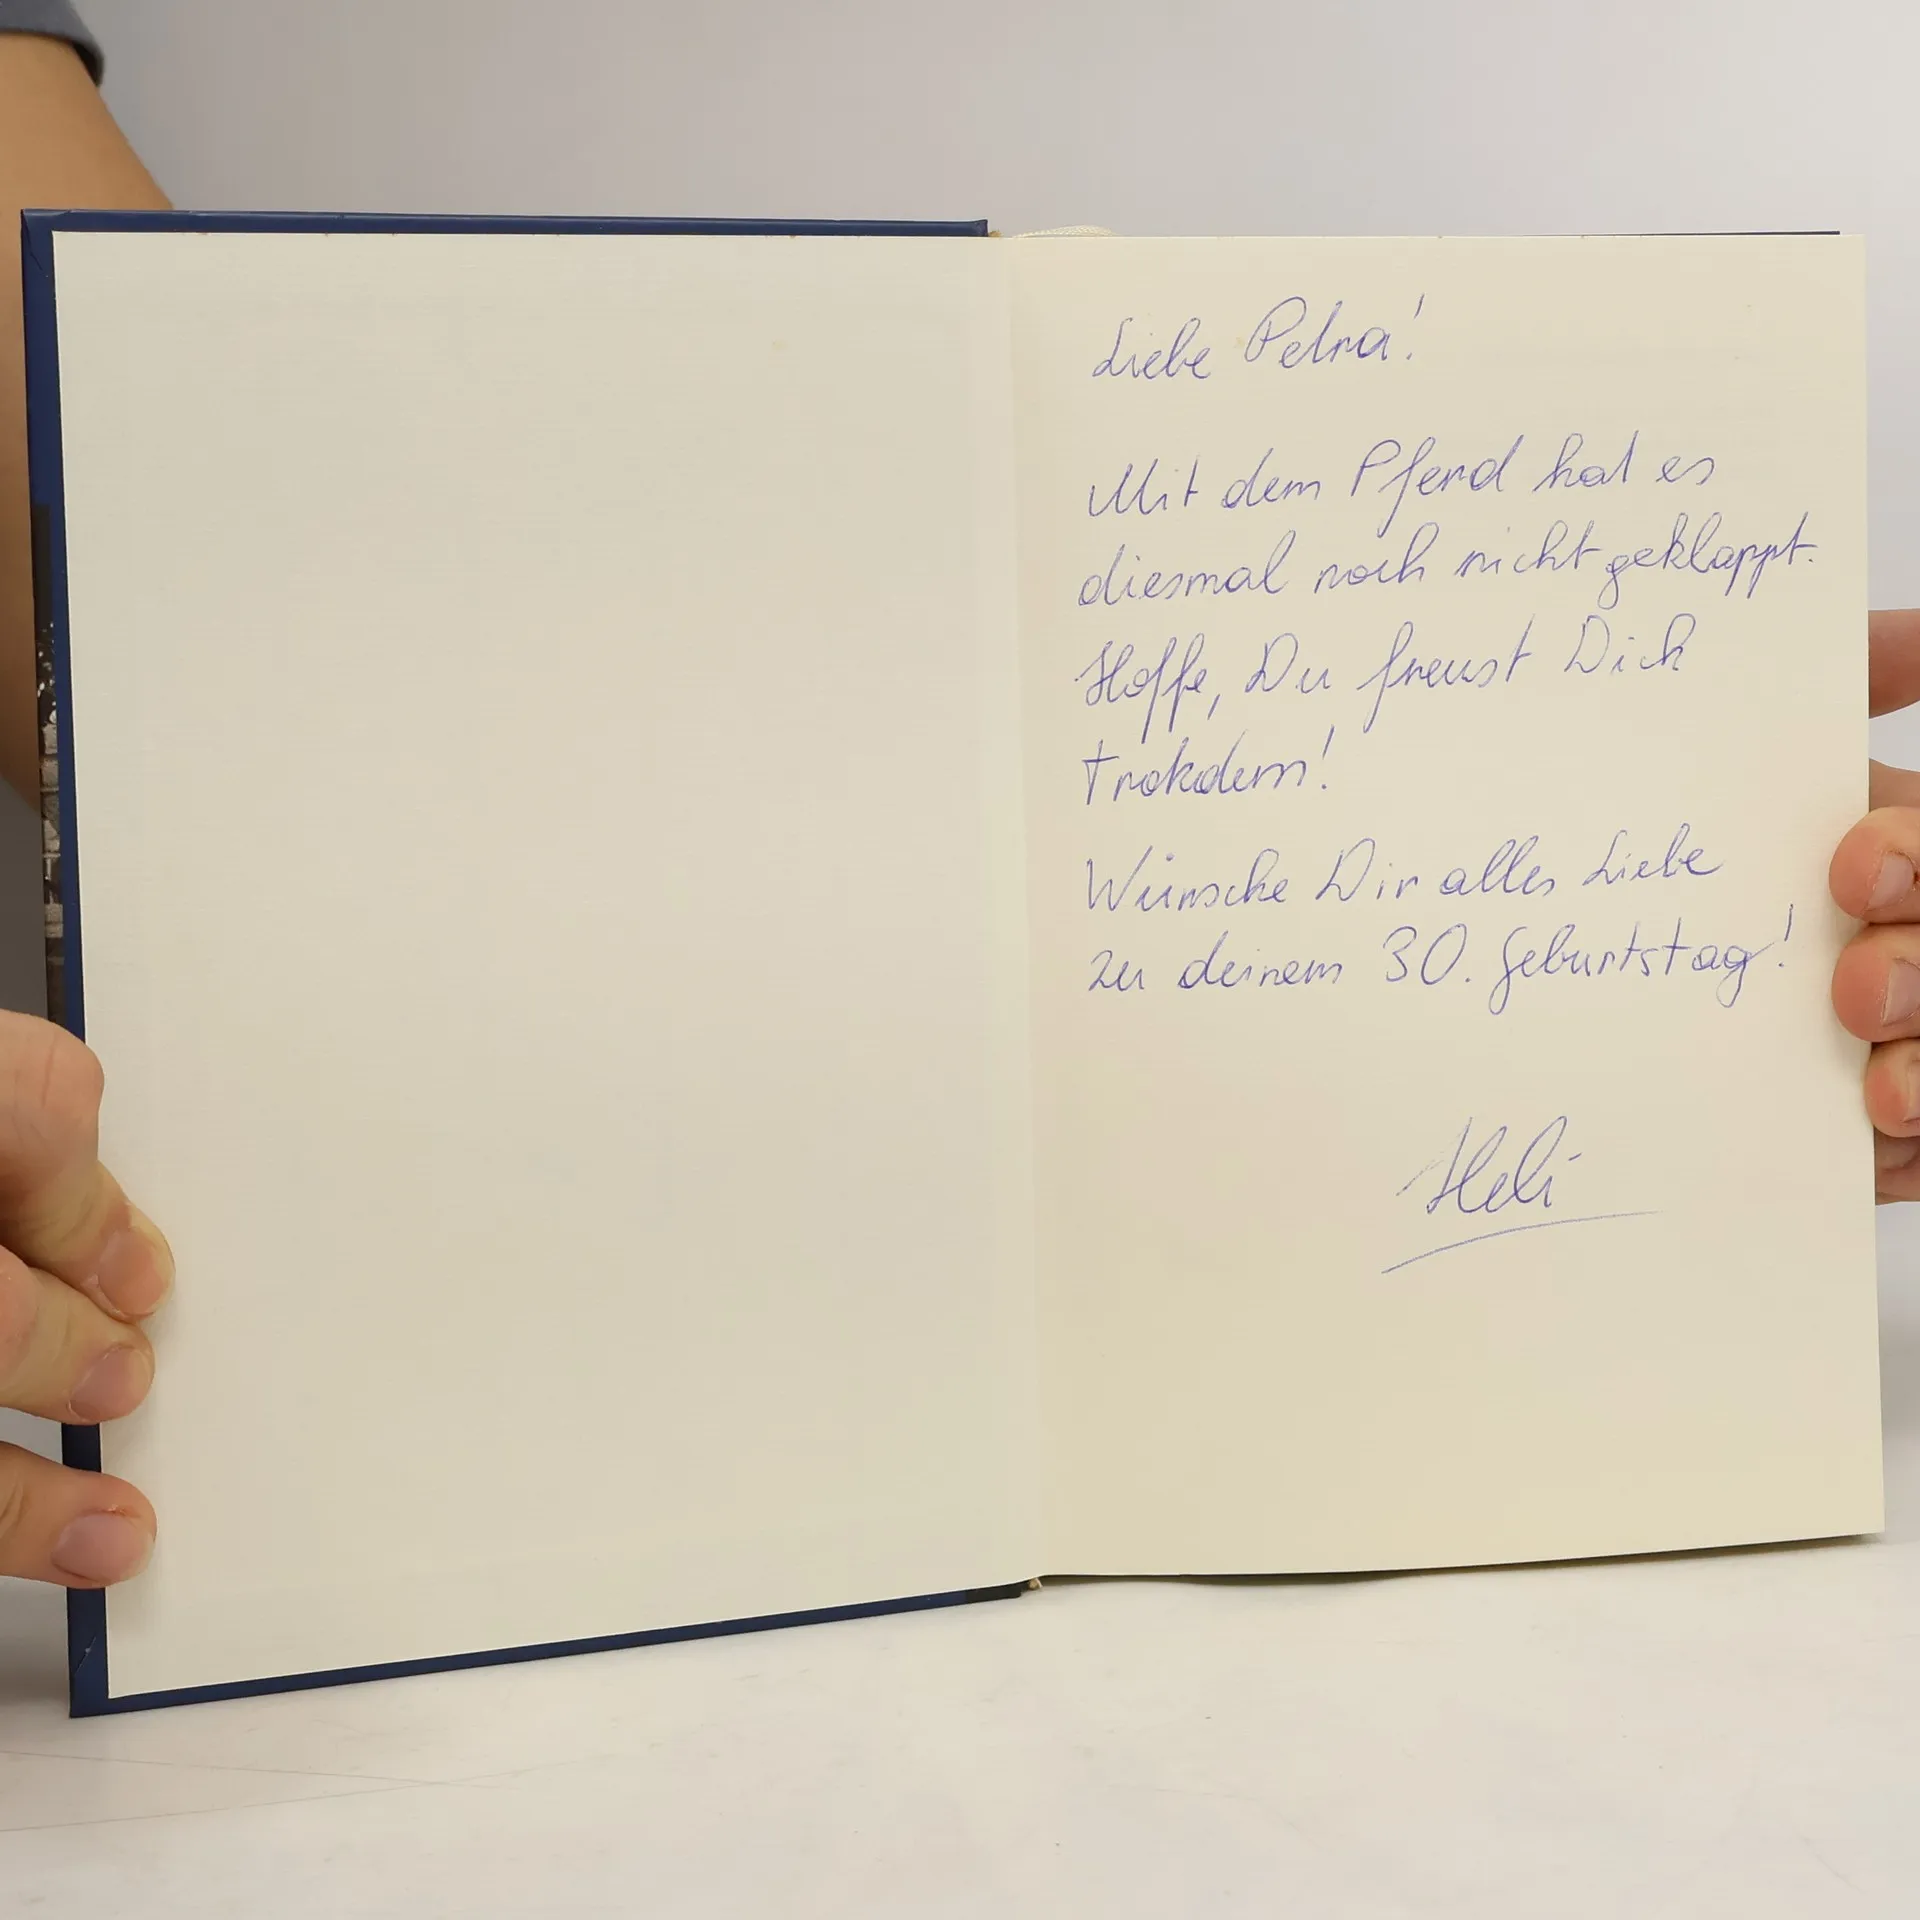 Liebe Petra!
Mit dem Pferd hat es
diesmal noch nicht geklappt.
Hoffe, Du freust Dich
trotzdem!
Wünsche Dir alles Liebe
zu deinem 30. Geburtstag!
Heli